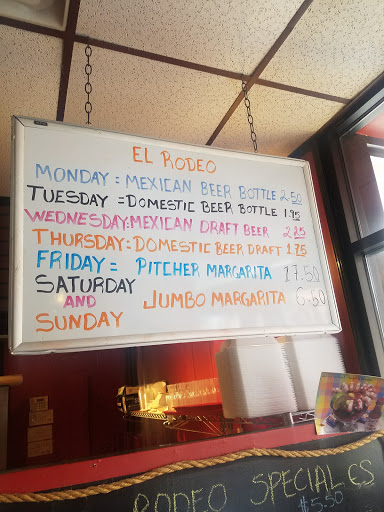 EL RODEO
MONDAY = MEXICAN BEER BOTTLE 2.50
TUESDAY = DOMESTIC BEER BOTTLE 1.95
WEDNESDAY: MEXICAN DRAFT BEER 2.25
THURSDAY: DOMESTIC BEER DRAFT 1.75
FRIDAY = PITCHER MARGARITA 17.50
SATURDAY
AND JUMBO MARGARITA 6.50
SUNDAY
RODEO SPECIALCS
$5.50